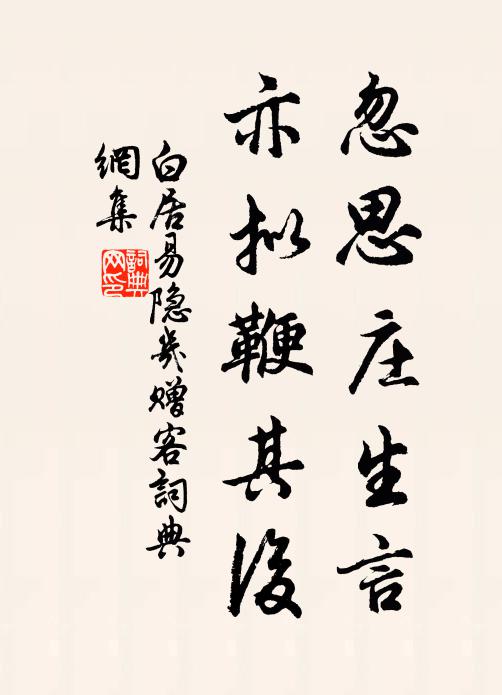 忽思庄生言
亦拟鞭其後
白居易隐几赠客詞典
網集
詞典
网印